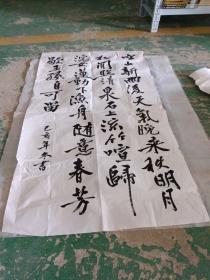 空山新雨後天氣晚来秋明月
松間照清泉石上流竹喧歸
浣女蓮動下漁舟随意春芳
歇王孫自可留
己亥年冬書